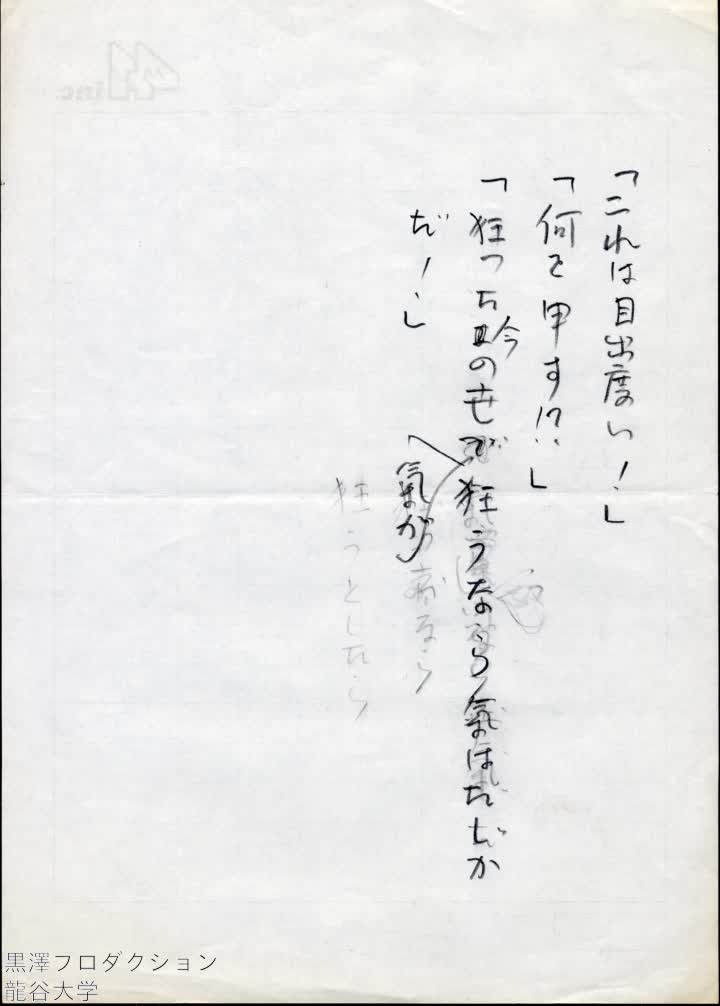 「これは目出度い！」
「何を申す！？」
「狂った今の世で氣が狂うなら氣はたしか
だ！」
狂うとしたら
黒澤プロダクション
龍谷大学